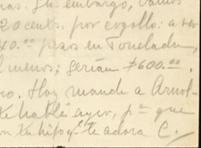 ras. Sin embargo, vamos
20 cents. por cogollo: a ver
40.00 pesos en Toneladas,
al menos; serían $600.00.
no. Hoy mandé a Arnol-
te hablé ayer, pa que
tu hijo q te adora C.